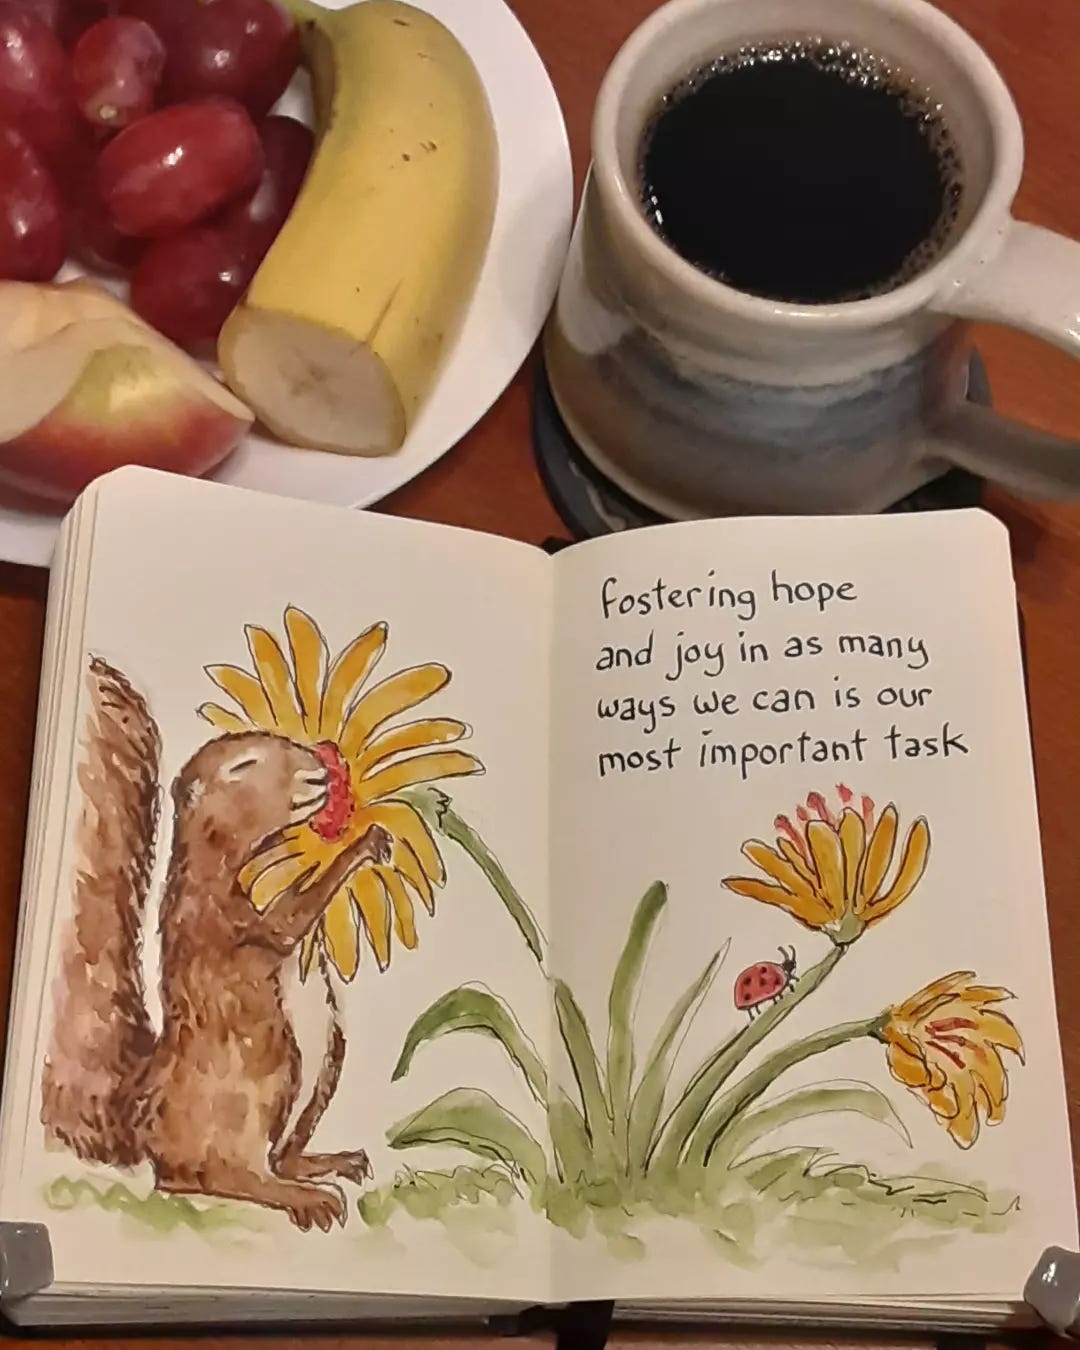 fostering hope
and joy in as many
ways we can is our
most important task